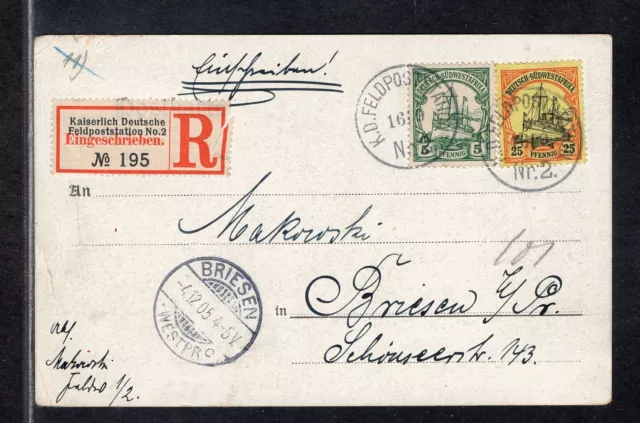 11)
Einschreiben!
Kaiserlich Deutsche
Feldpoststation No.2
Eingeschrieben.
№ 195
R
K.D.FELDPOST
16
Nr.
DEUTSCH-SÜDWESTAFRIKA
5 PFENNIG 5
DEUTSCH-SÜDWESTAFRIKA
25 PFENNIG 25
Nr.2.
An
Makowski
101
in Briesen W/Pr.
Schönseerstr. 143.
BRIESEN
-4.12.05.4-5V.
(WESTPR.)
Abs.
Makowski
1/2.